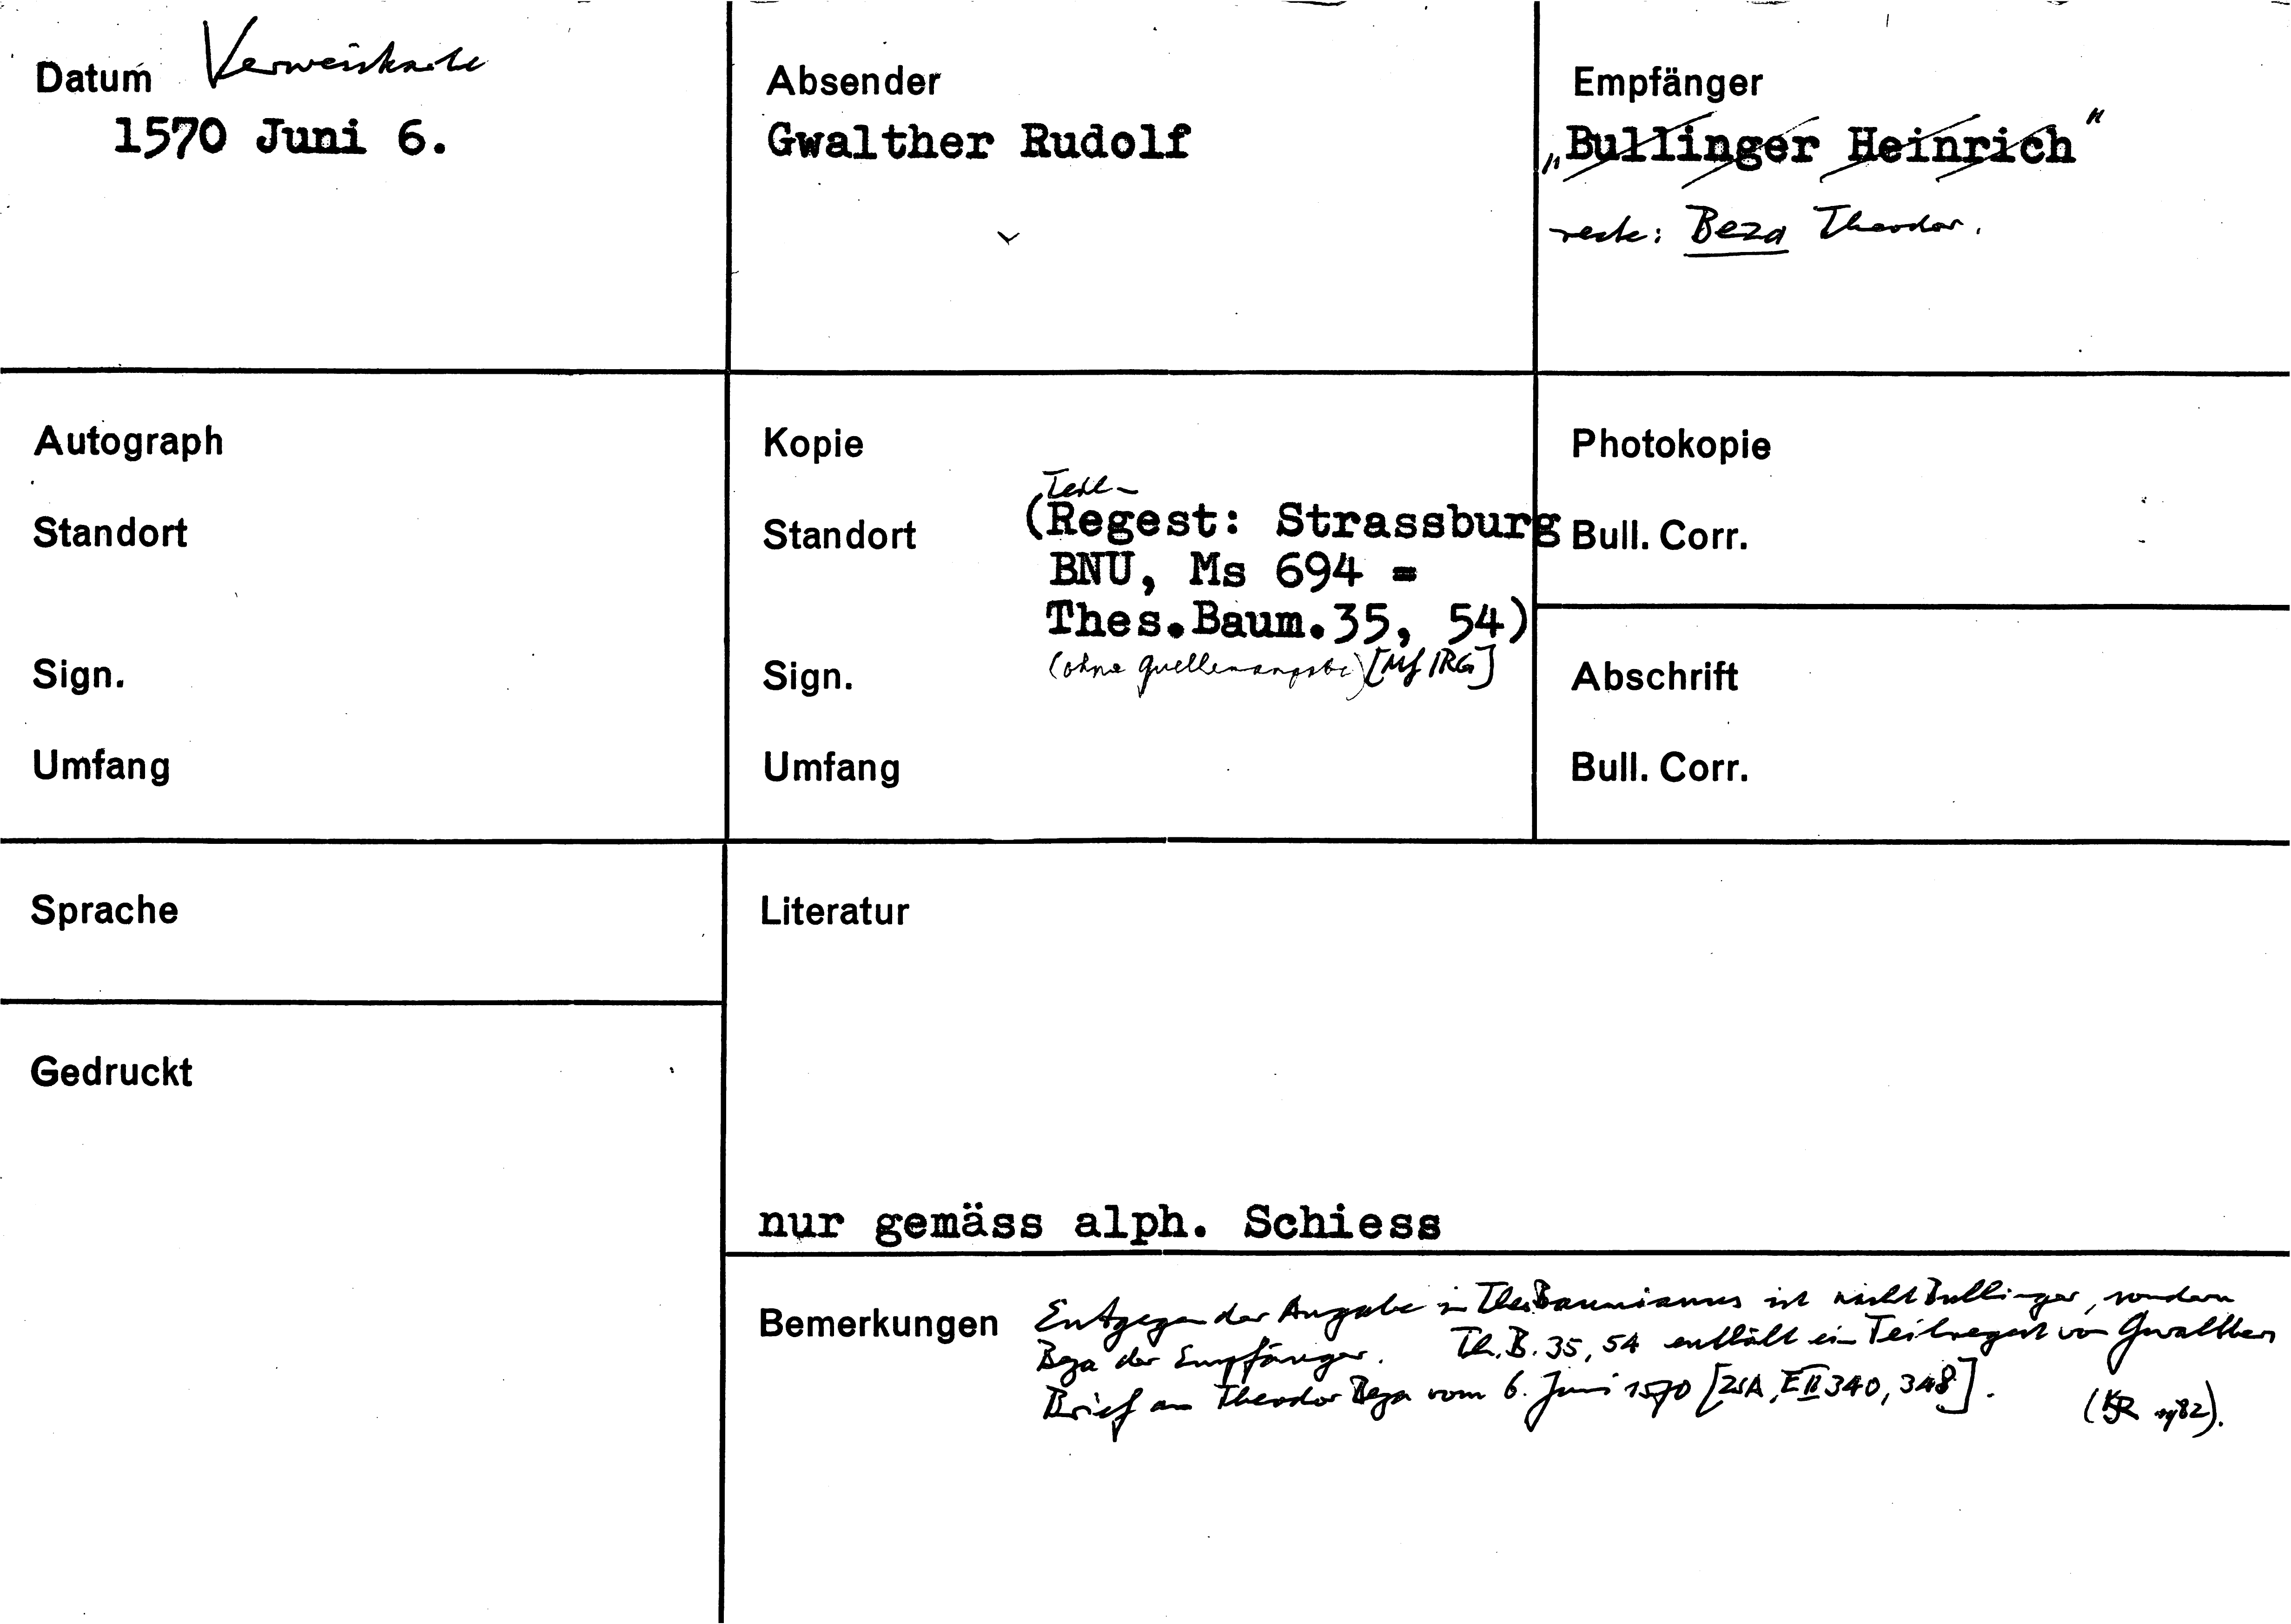 Datum Verweiskarte
1570 Juni 6.
Absender
Gwalther Rudolf
Empfänger
„Bullinger Heinrich"
recte: Beza Theodor.
Autograph
Standort
Sign.
Umfang
Kopie
Teil-
Standort (Regest: Strassburg
BNU, Ms 694 =
Thes.Baum.35, 54)
Sign. (ohne Quellenangabe) [Mf IRG]
Umfang
Photokopie
Bull. Corr.
Abschrift
Bull. Corr.
Sprache
Gedruckt
Literatur
nur gemäss alph. Schiess
Bemerkungen Entgegen der Angabe in Thes. Baumianus ist nicht Bullinger, sondern
Beza der Empfänger. Th. B. 35, 54 enthält ein Teilregest von Gwalthers
Brief an Theodor Beza vom 6. Juni 1570 [ZSA, E II 340, 348].
(KJR 82).